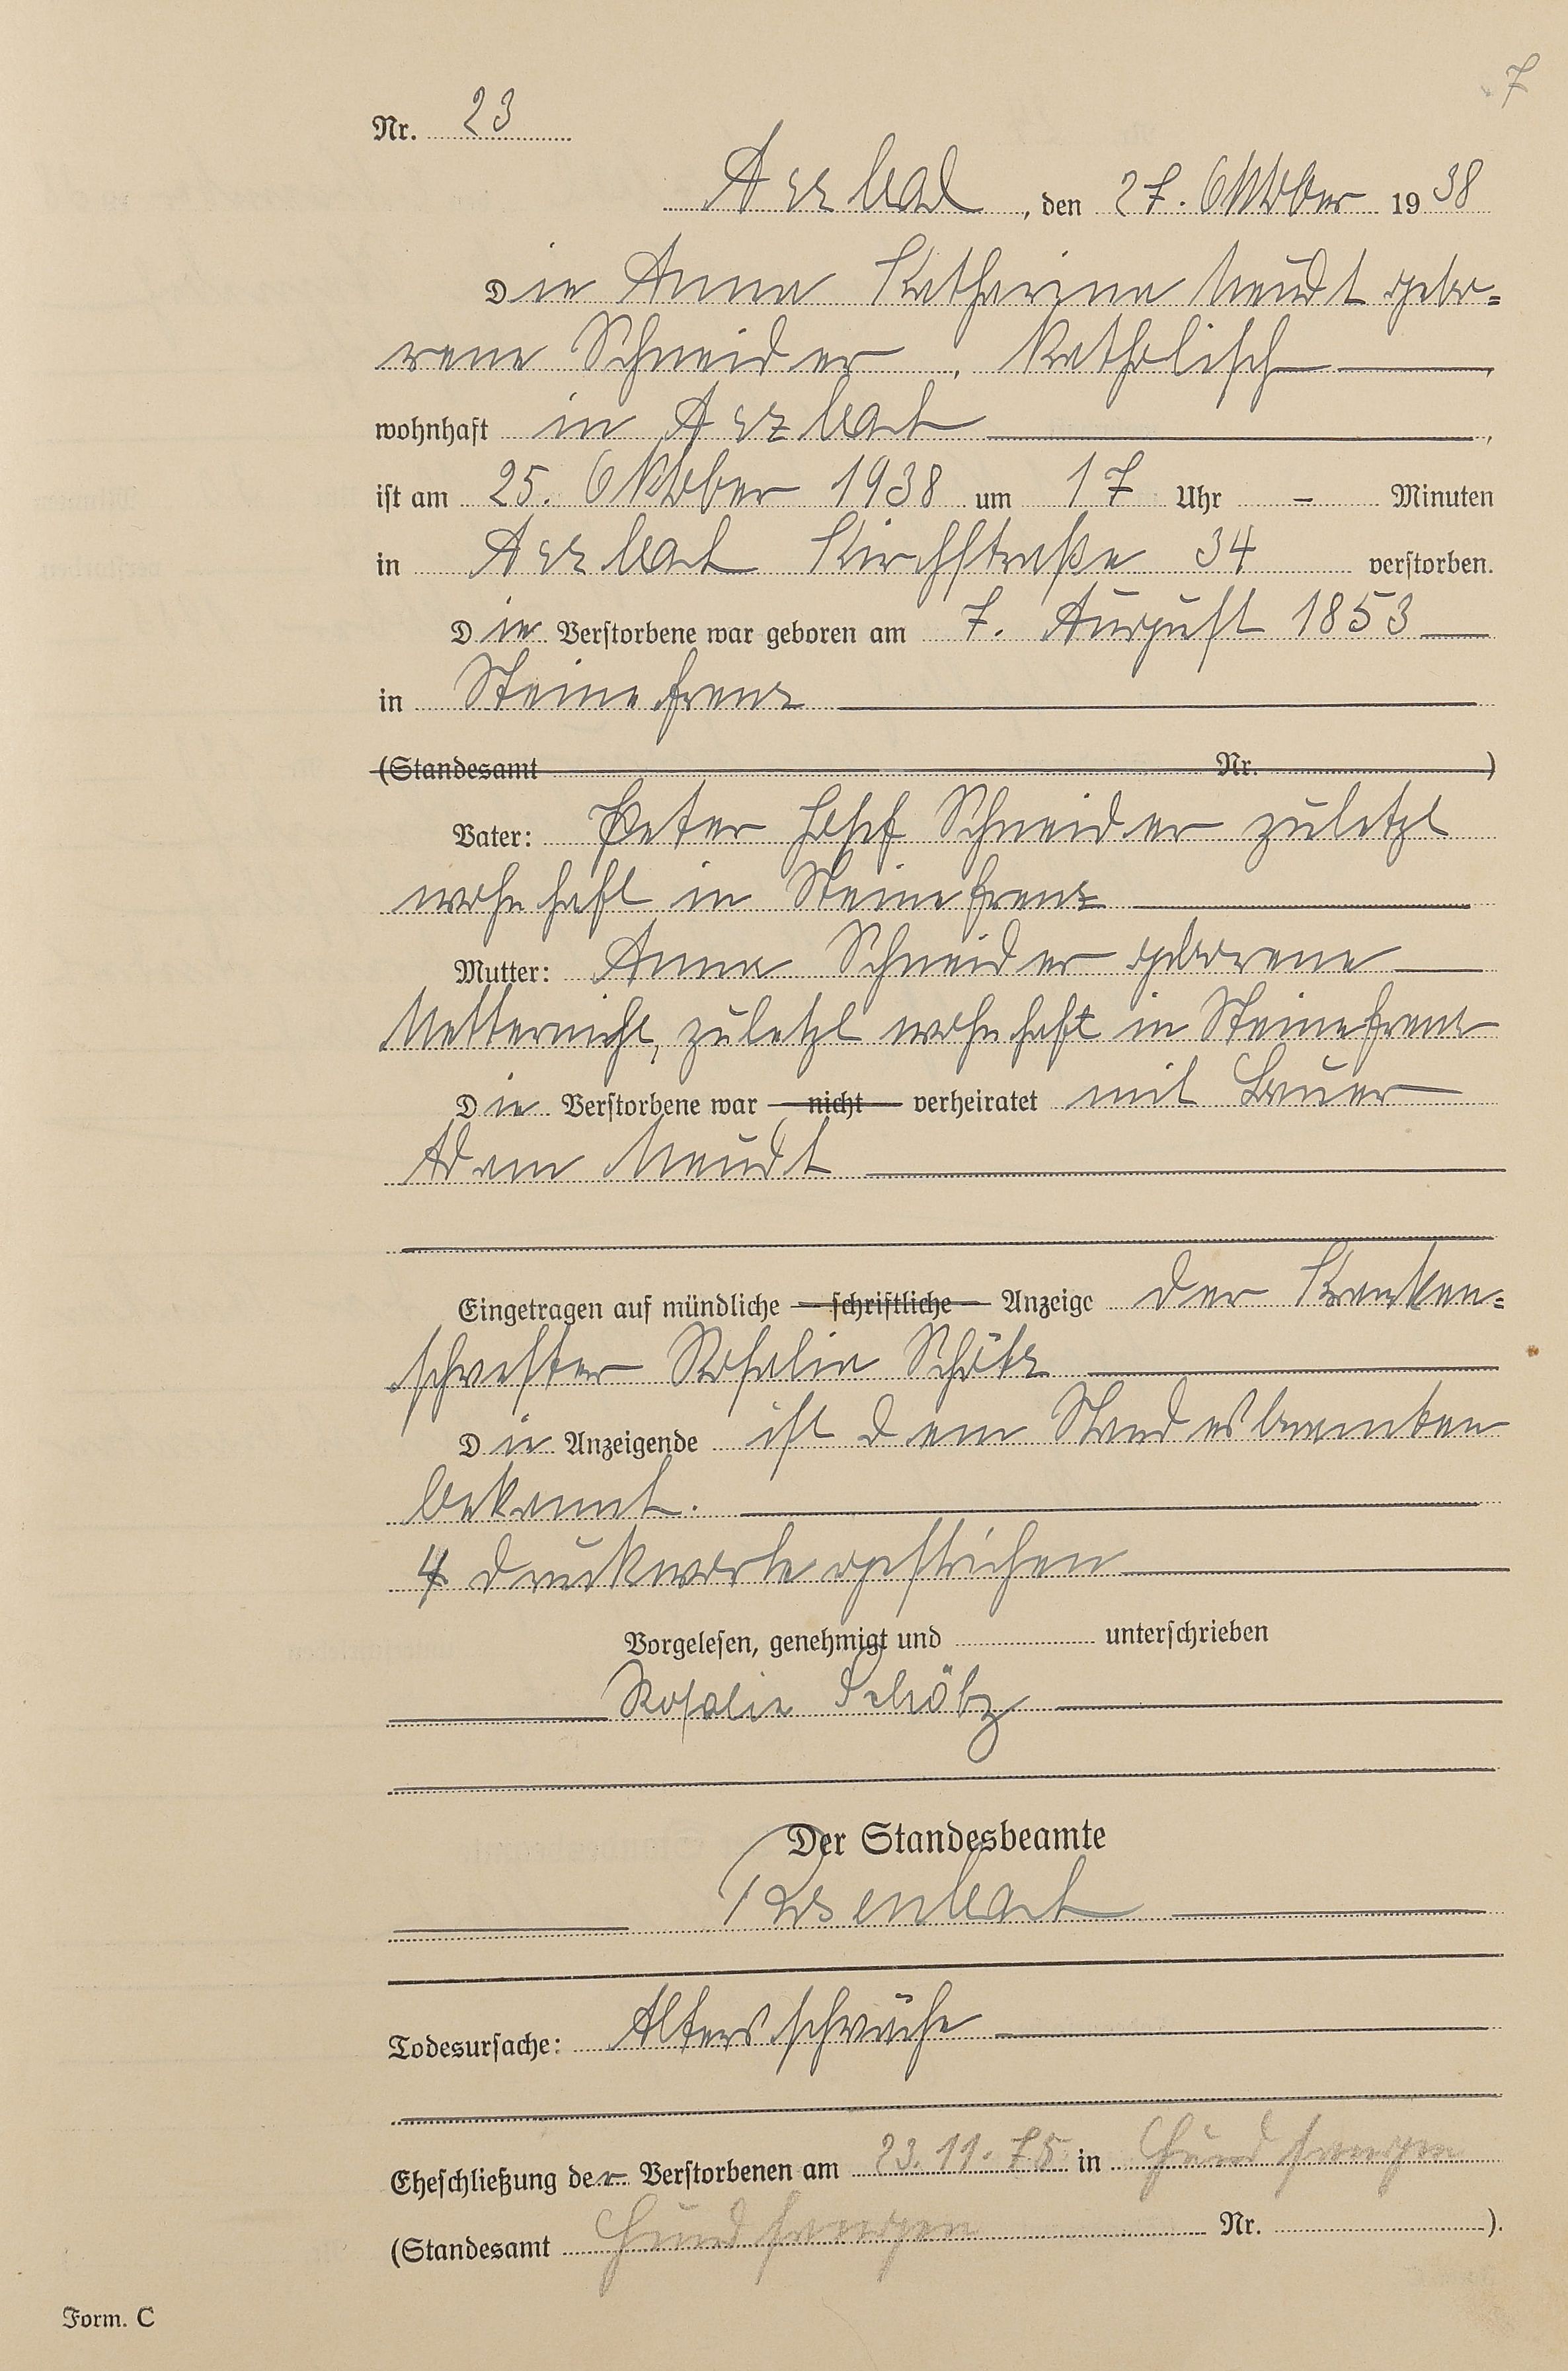 7
Nr. 23
Arzbach, den 27. Oktober 1938
Die Anna Katharina Neudt gebo=
rene Schneider, katholisch,
wohnhaft in Arzbach,
ist am 25. Oktober 1938 um 17 Uhr – Minuten
in Arzbach Kirchstraße 34 verstorben.
Die Verstorbene war geboren am 7. August 1853
in Steinefrenz
(Standesamt Nr. )
Vater: Peter Josef Schneider zuletzt
wohnhaft in Steinefrenz
Mutter: Anna Schneider geborene
Metternicht, zuletzt wohnhaft in Steinefrenz
Die Verstorbene war nicht verheiratet mit Bauer
Adam Neudt
Eingetragen auf mündliche schriftliche Anzeige der Kranken=
schwester Rosalia Schötz
Die Anzeigende ist dem Standesbeamten
bekannt.
4 Druckworte gestrichen
Vorgelesen, genehmigt und unterschrieben
Rosalie Schötz
Der Standesbeamte
Todesursache: Altersschwäche
Eheschließung der Verstorbenen am 23.11.75 in Hundsangen
(Standesamt Hundsangen Nr. ).
Form. C